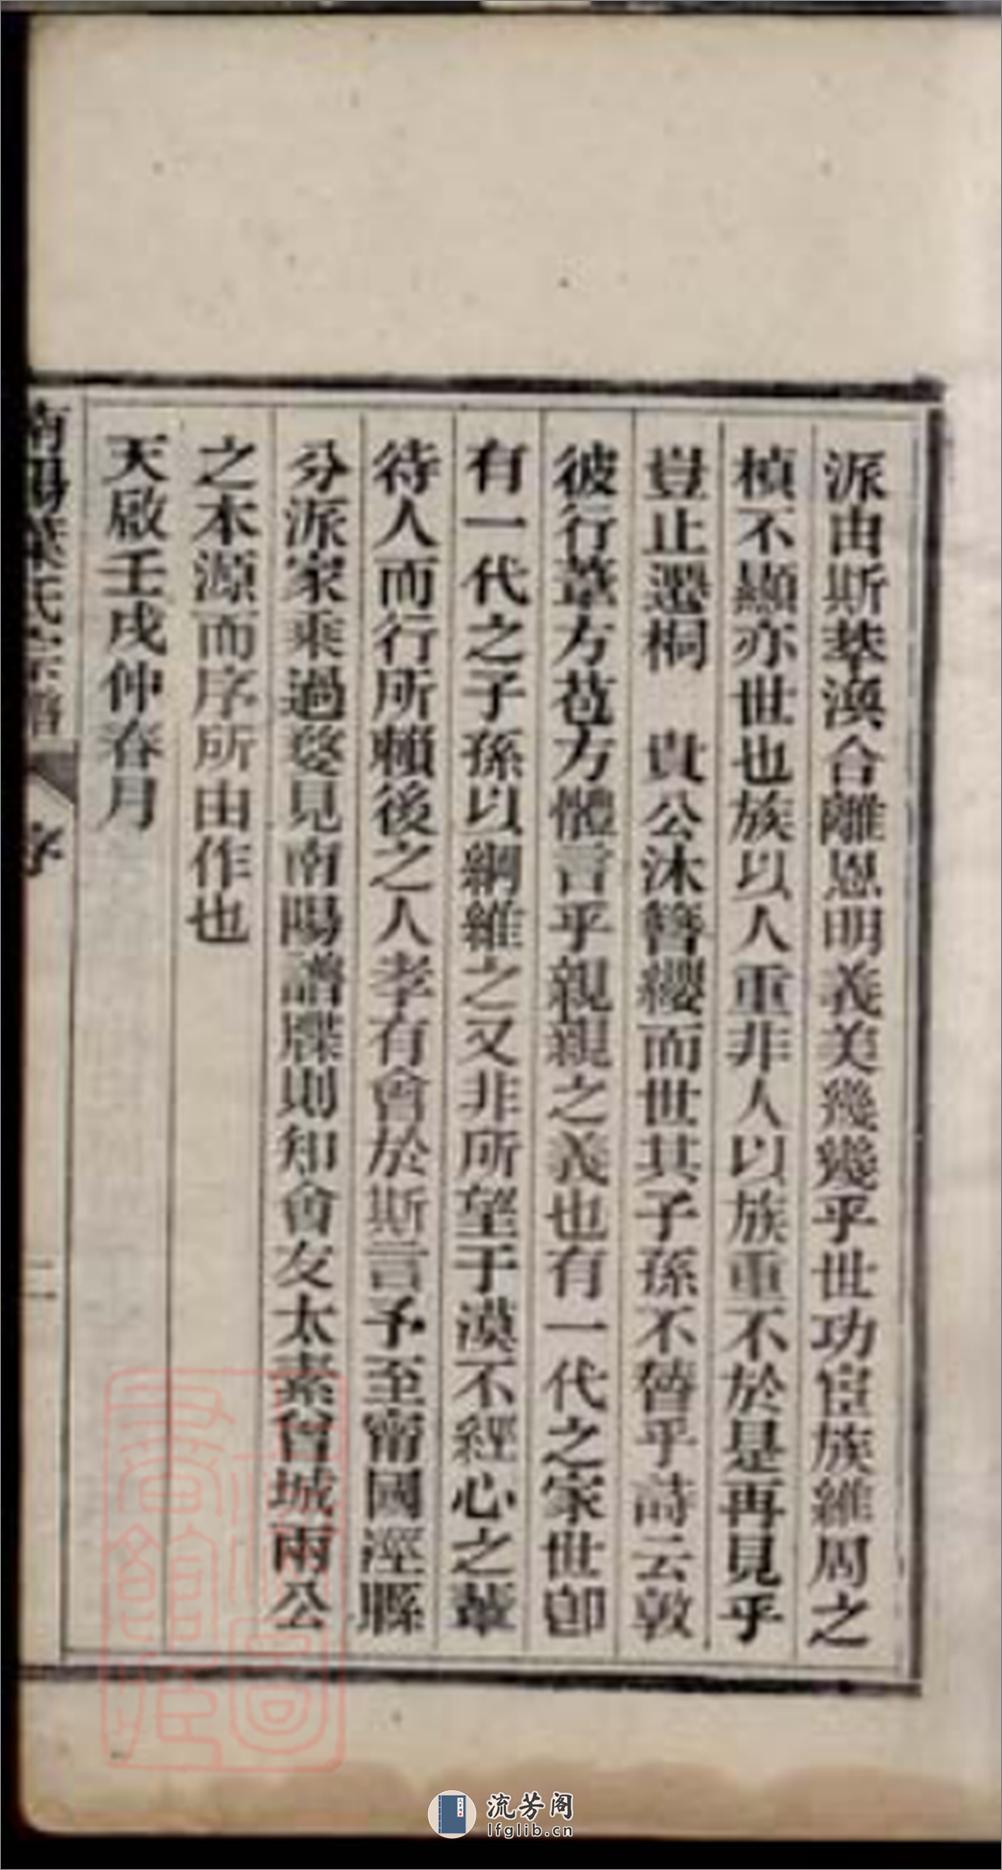 派由斯萃渙合離恩明義美幾幾乎世功宦族維周之
楨不顯亦世也族以人重非人以族重不於是再見乎
豈止翳桐　貴公沐簪纓而世其子孫不替乎詩云敦
彼行葦方苞方體言乎親親之義也有一代之家世卽
有一代之子孫以綱維之又非所望于漠不經心之輩
待人而行所賴後之人孝有會於斯言予至甯國涇縣
分派家乘過婺見南陽譜牒則知會友太素曾城兩公
之本源而序所由作也
天啟壬戌仲春月
南陽葉氏宗譜
序
二
流芳阁
lfglib.cn